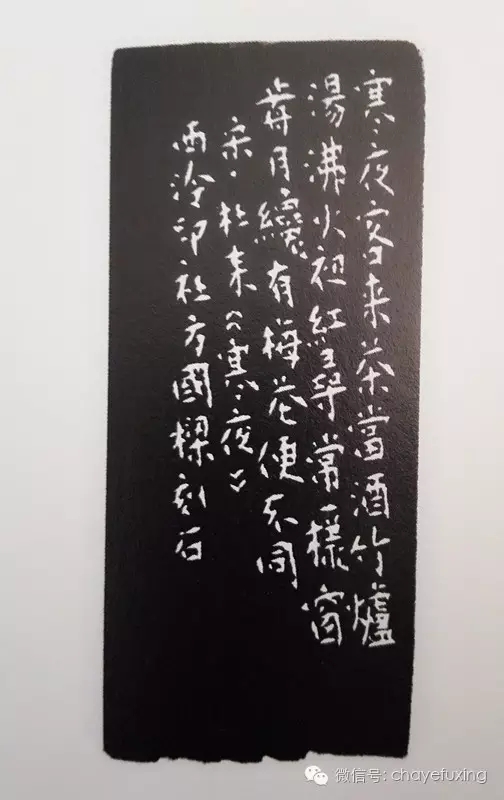 寒夜客来茶當酒竹爐
湯沸火初紅尋常一樣窗
前月纔有梅花便不同
宋·杜耒《寒夜》
西泠印社方國樑刻石
微信号: chayefuxing